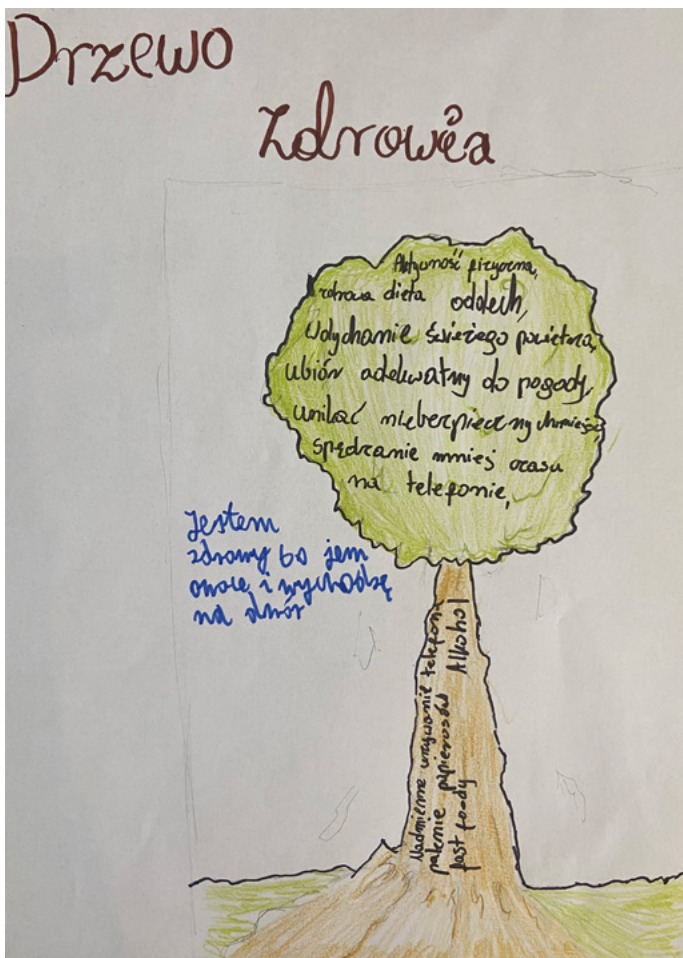 Drzewo
Zdrowia
Aktywność fizyczna,
zdrowa dieta oddech,
Wdychanie świeżego powietrza,
ubiór adekwatny do pogody,
unikać niebezpieczny
spędzanie mniej czasu
na telefonie,
Jestem
zdrowy bo jem
owoce i wychodzę
na dwór
Nadmierne używanie telefonu
palenie papierosów Alkohol
fast foody